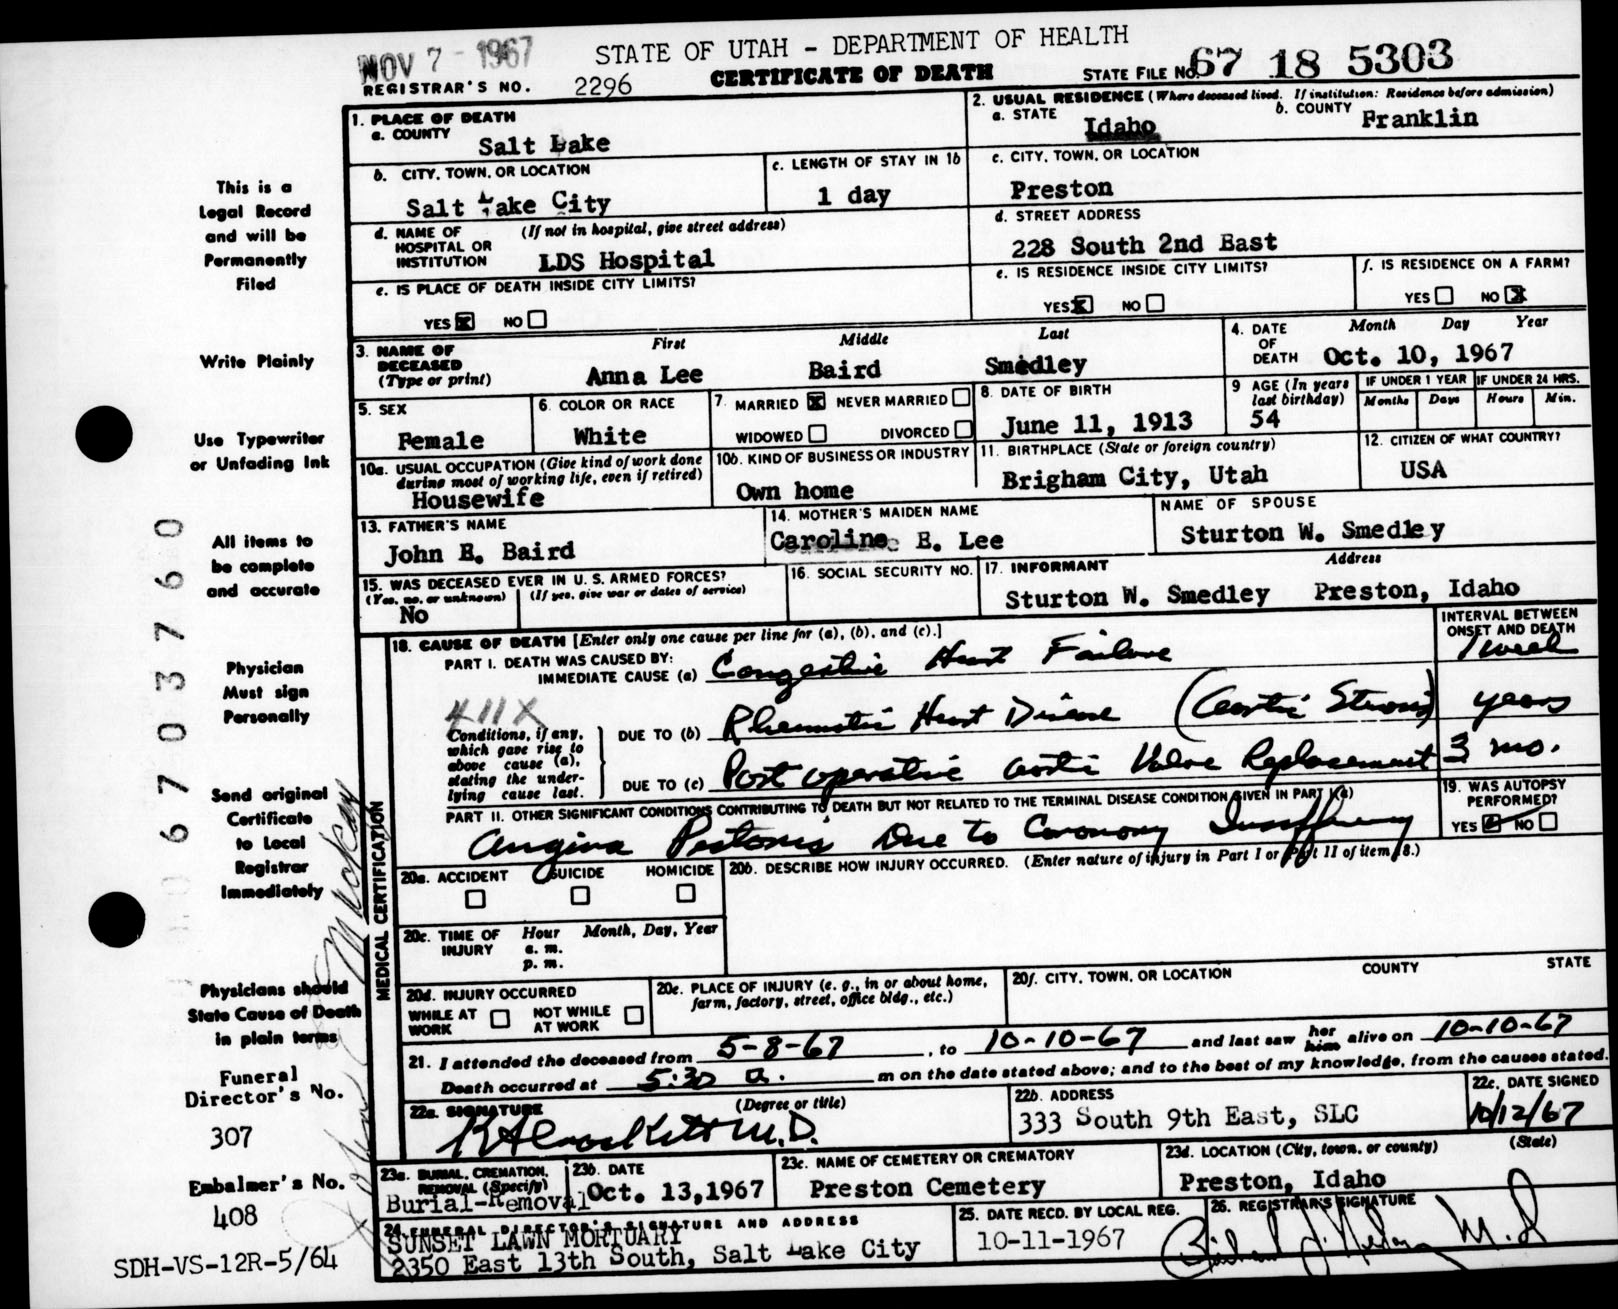 NOV 7 - 1967
STATE OF UTAH - DEPARTMENT OF HEALTH
REGISTRAR'S NO. 2296 CERTIFICATE OF DEATH STATE FILE NO. 67 18 5303
1. PLACE OF DEATH
a. COUNTY
Salt Lake
2. USUAL RESIDENCE (Where deceased lived. If institution: Residence before admission)
a. STATE Idaho b. COUNTY Franklin
b. CITY, TOWN, OR LOCATION
Salt Lake City
c. LENGTH OF STAY IN 1b
1 day
c. CITY, TOWN, OR LOCATION
Preston
d. NAME OF HOSPITAL OR INSTITUTION (If not in hospital, give street address)
LDS Hospital
d. STREET ADDRESS
228 South 2nd East
e. IS PLACE OF DEATH INSIDE CITY LIMITS?
YES X NO
e. IS RESIDENCE INSIDE CITY LIMITS?
YES X NO
f. IS RESIDENCE ON A FARM?
YES NO X
3. NAME OF DECEASED (Type or print)
First Middle Last
Anna Lee Baird Smedley
4. DATE OF DEATH Month Day Year
Oct. 10, 1967
5. SEX
Female
6. COLOR OR RACE
White
7. MARRIED X NEVER MARRIED
WIDOWED DIVORCED
8. DATE OF BIRTH
June 11, 1913
9 AGE (In years last birthday)
54
IF UNDER 1 YEAR IF UNDER 24 HRS.
Months Days Hours Min.
10a. USUAL OCCUPATION (Give kind of work done during most of working life, even if retired)
Housewife
10b. KIND OF BUSINESS OR INDUSTRY
Own home
11. BIRTHPLACE (State or foreign country)
Brigham City, Utah
12. CITIZEN OF WHAT COUNTRY?
USA
13. FATHER'S NAME
John E. Baird
14. MOTHER'S MAIDEN NAME
Caroline E. Lee
NAME OF SPOUSE
Sturton W. Smedley
15. WAS DECEASED EVER IN U. S. ARMED FORCES?
(Yes, no, or unknown) (If yes, give war or dates of service)
No
16. SOCIAL SECURITY NO.
17. INFORMANT Address
Sturton W. Smedley Preston, Idaho
18. CAUSE OF DEATH [Enter only one cause per line for (a), (b), and (c).]
INTERVAL BETWEEN ONSET AND DEATH
PART I. DEATH WAS CAUSED BY:
IMMEDIATE CAUSE (a) Congestive Heart Failure 1 week
411X
Conditions, if any, which gave rise to above cause (a), stating the underlying cause last.
DUE TO (b) Rheumatic Heart Disease (Aortic Stenosis) years
DUE TO (c) Post operative aortic Valve Replacement 3 mo.
PART II. OTHER SIGNIFICANT CONDITIONS CONTRIBUTING TO DEATH BUT NOT RELATED TO THE TERMINAL DISEASE CONDITION GIVEN IN PART I(a)
Angina Pectoris Due to Coronary Insufficiency
19. WAS AUTOPSY PERFORMED?
YES NO
20a. ACCIDENT SUICIDE HOMICIDE
20b. DESCRIBE HOW INJURY OCCURRED. (Enter nature of injury in Part I or Part II of item 18.)
20c. TIME OF INJURY Hour Month, Day, Year
a. m.
p. m.
20d. INJURY OCCURRED
WHILE AT WORK NOT WHILE AT WORK
20e. PLACE OF INJURY (e. g., in or about home, farm, factory, street, office bldg., etc.)
20f. CITY, TOWN, OR LOCATION COUNTY STATE
21. I attended the deceased from 5-8-67, to 10-10-67 and last saw her him alive on 10-10-67
Death occurred at 5:30 a. m on the date stated above; and to the best of my knowledge, from the causes stated.
22a. SIGNATURE (Degree or title)
M.D.
22b. ADDRESS
333 South 9th East, SLC
22c. DATE SIGNED
10/12/67
23a. BURIAL, CREMATION, REMOVAL (Specify)
Burial-Removal
23b. DATE
Oct. 13,1967
23c. NAME OF CEMETERY OR CREMATORY
Preston Cemetery
23d. LOCATION (City, town, or county) (State)
Preston, Idaho
24. FUNERAL DIRECTOR'S SIGNATURE AND ADDRESS
SUNSET LAWN MORTUARY
2350 East 13th South, Salt Lake City
25. DATE RECD. BY LOCAL REG.
10-11-1967
26. REGISTRAR'S SIGNATURE
M.D
MEDICAL CERTIFICATION
This is a
Legal Record
and will be
Permanently
Filed
Write Plainly
Use Typewriter
or Unfading Ink
All items to
be complete
and accurate
Physician
Must sign
Personally
Send original
Certificate
to Local
Registrar
Immediately
Physicians should
State Cause of Death
in plain terms
Funeral
Director's No.
307
Embalmer's No.
408
SDH-VS-12R-5/64
0 6 7 0 3 7 6 0